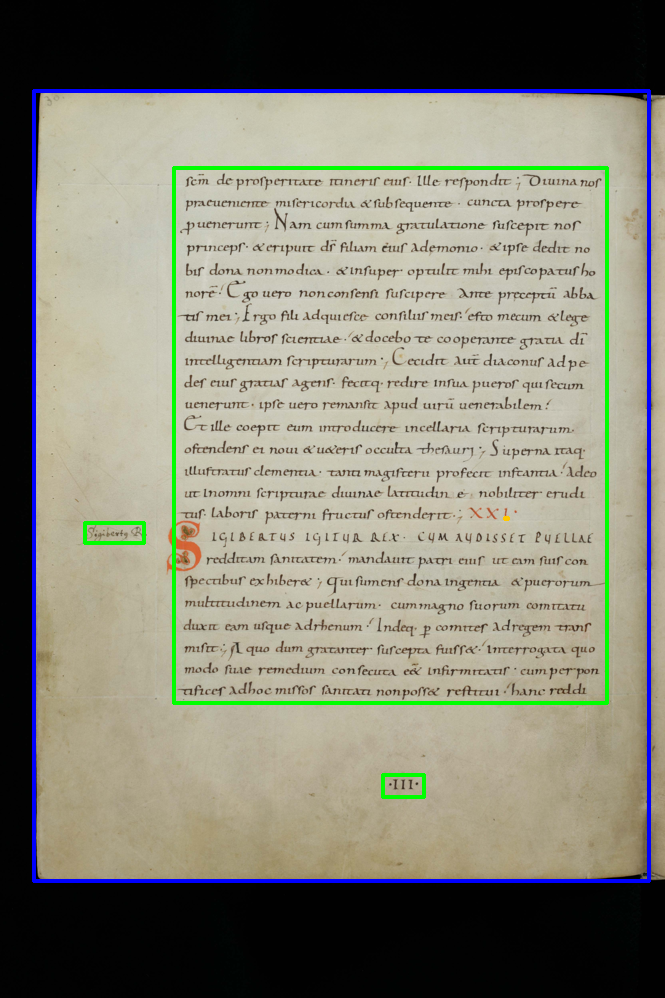 sem̄ de prosperitate itineris eius. Ille respondit ; Diuina nos
praeueniente misericordia & subsequente . cuncta prospere
ꝓuenerunt ; Nam cum summa gratulatione suscepit nos
princeps . & eripuit dr̄ filiam eius ademonio . & ipse dedit no
bis dona non modica . & insuper optulit mihi episcopatus ho
norē ; Ego uero non consensi suscipere Ante preceptū abba
tis mei ; Ergo fili adquiesce consiliis meis . esto mecum & lege
diuinae libros scientiae . & docebo te cooperante gratia dī
intelligentiam scripturarum ; Cecidit aut̄ diaconus ad pe
des eius gratias agens . fecitq. redire insua pueros qui secum
uenerunt . ipse uero remansit apud uirū uenerabilem .
Et ille coepit eum introducere incellaria scripturarum .
ostendens ei noui & u&eris occulta thesauri ; Superna itaq.
illustratus clementia . tanti magisterii profecit instantia . Adeo
ut inomni scripturae diuinae latitudine nobiliter erudi
tus . laboris paterni fructus ostenderit . ; XXI .
Sigibertus R.
SIGIBERTUS IGITUR REX . CUM AUDISSET PUELLAE
redditam sanitatem . mandauit patri eius ut eam suis con
spectibus exhiber& ; Qui sumens dona ingentia & puerorum
multitudinem ac puellarum . cum magno suorum comitatu
duxit eam usque adrhenum . Indeq. ꝑ comites ad regem trans
misit ; A quo dum gratanter suscepta fuiss& . interrogata quo
modo suae remedium consecuta eē& infirmitatis . cum per pon
tifices adhoc missos sanitati non poss& restitui . hanc reddi
·III·